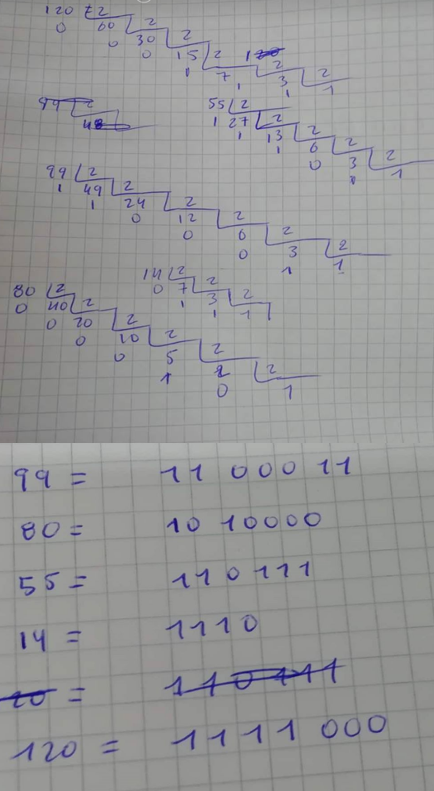 120 2
0 60 2
0 30 2
0 15 2
1 7 2
1 3 2
1 1
99 2
48
55 2
1 27 2
1 13 2
1 6 2
0 3 2
1 1
99 2
1 49 2
1 24 2
0 12 2
0 6 2
0 3 2
1 1
14 2
0 7 2
1 3 2
1 1
80 2
0 40 2
0 20 2
0 10 2
0 5 2
1 2 2
0 1
99 = 11 000 11
80 = 10 10000
55 = 110 111
14 = 1110
20 = 110111
120 = 1111 000